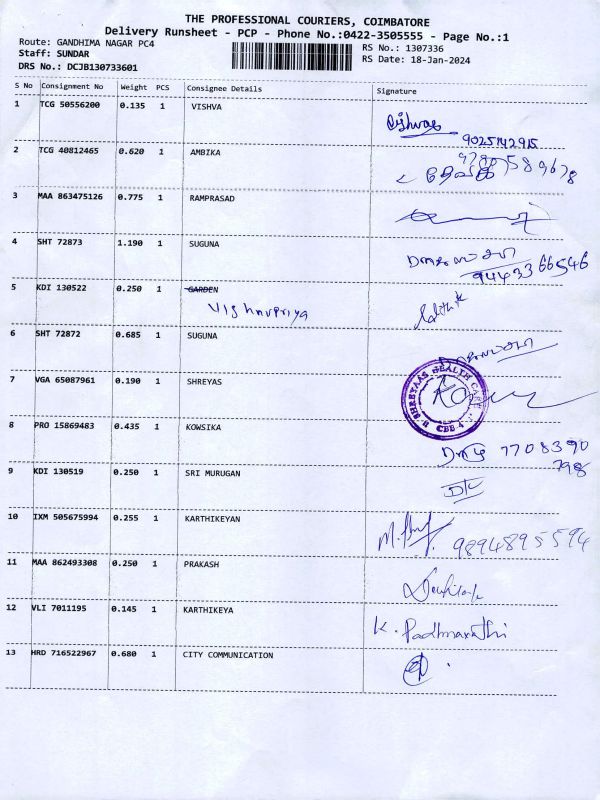 THE PROFESSIONAL COURIERS, COIMBATORE
Delivery Runsheet - PCP - Phone No.:0422-3505555 - Page No.:1
Route: GANDHIMA NAGAR PC4
RS No.: 1307336
Staff: SUNDAR
RS Date: 18-Jan-2024
DRS No.: DCJB130733601
S No Consignment No Weight PCS Consignee Details Signature
1 TCG 50556200 0.135 1 VISHVA
9025142915
2 TCG 40812465 0.620 1 AMBIKA
3 MAA 863475126 0.775 1 RAMPRASAD
4 SHT 72873 1.190 1 SUGUNA
9443366546
5 KDI 130522 0.250 1 GARDEN
Vishnupriya
6 SHT 72872 0.685 1 SUGUNA
7 VGA 65087961 0.190 1 SHREYAS
SHREYAAS HEALTH CARE
CBE 4
8 PRO 15869483 0.435 1 KOWSIKA
7708390
798
9 KDI 130519 0.250 1 SRI MURUGAN
10 IXM 505675994 0.255 1 KARTHIKEYAN
9894895594
11 MAA 862493308 0.250 1 PRAKASH
12 VLI 7011195 0.145 1 KARTHIKEYA
K. Padmavathi
13 HRD 716522967 0.680 1 CITY COMMUNICATION